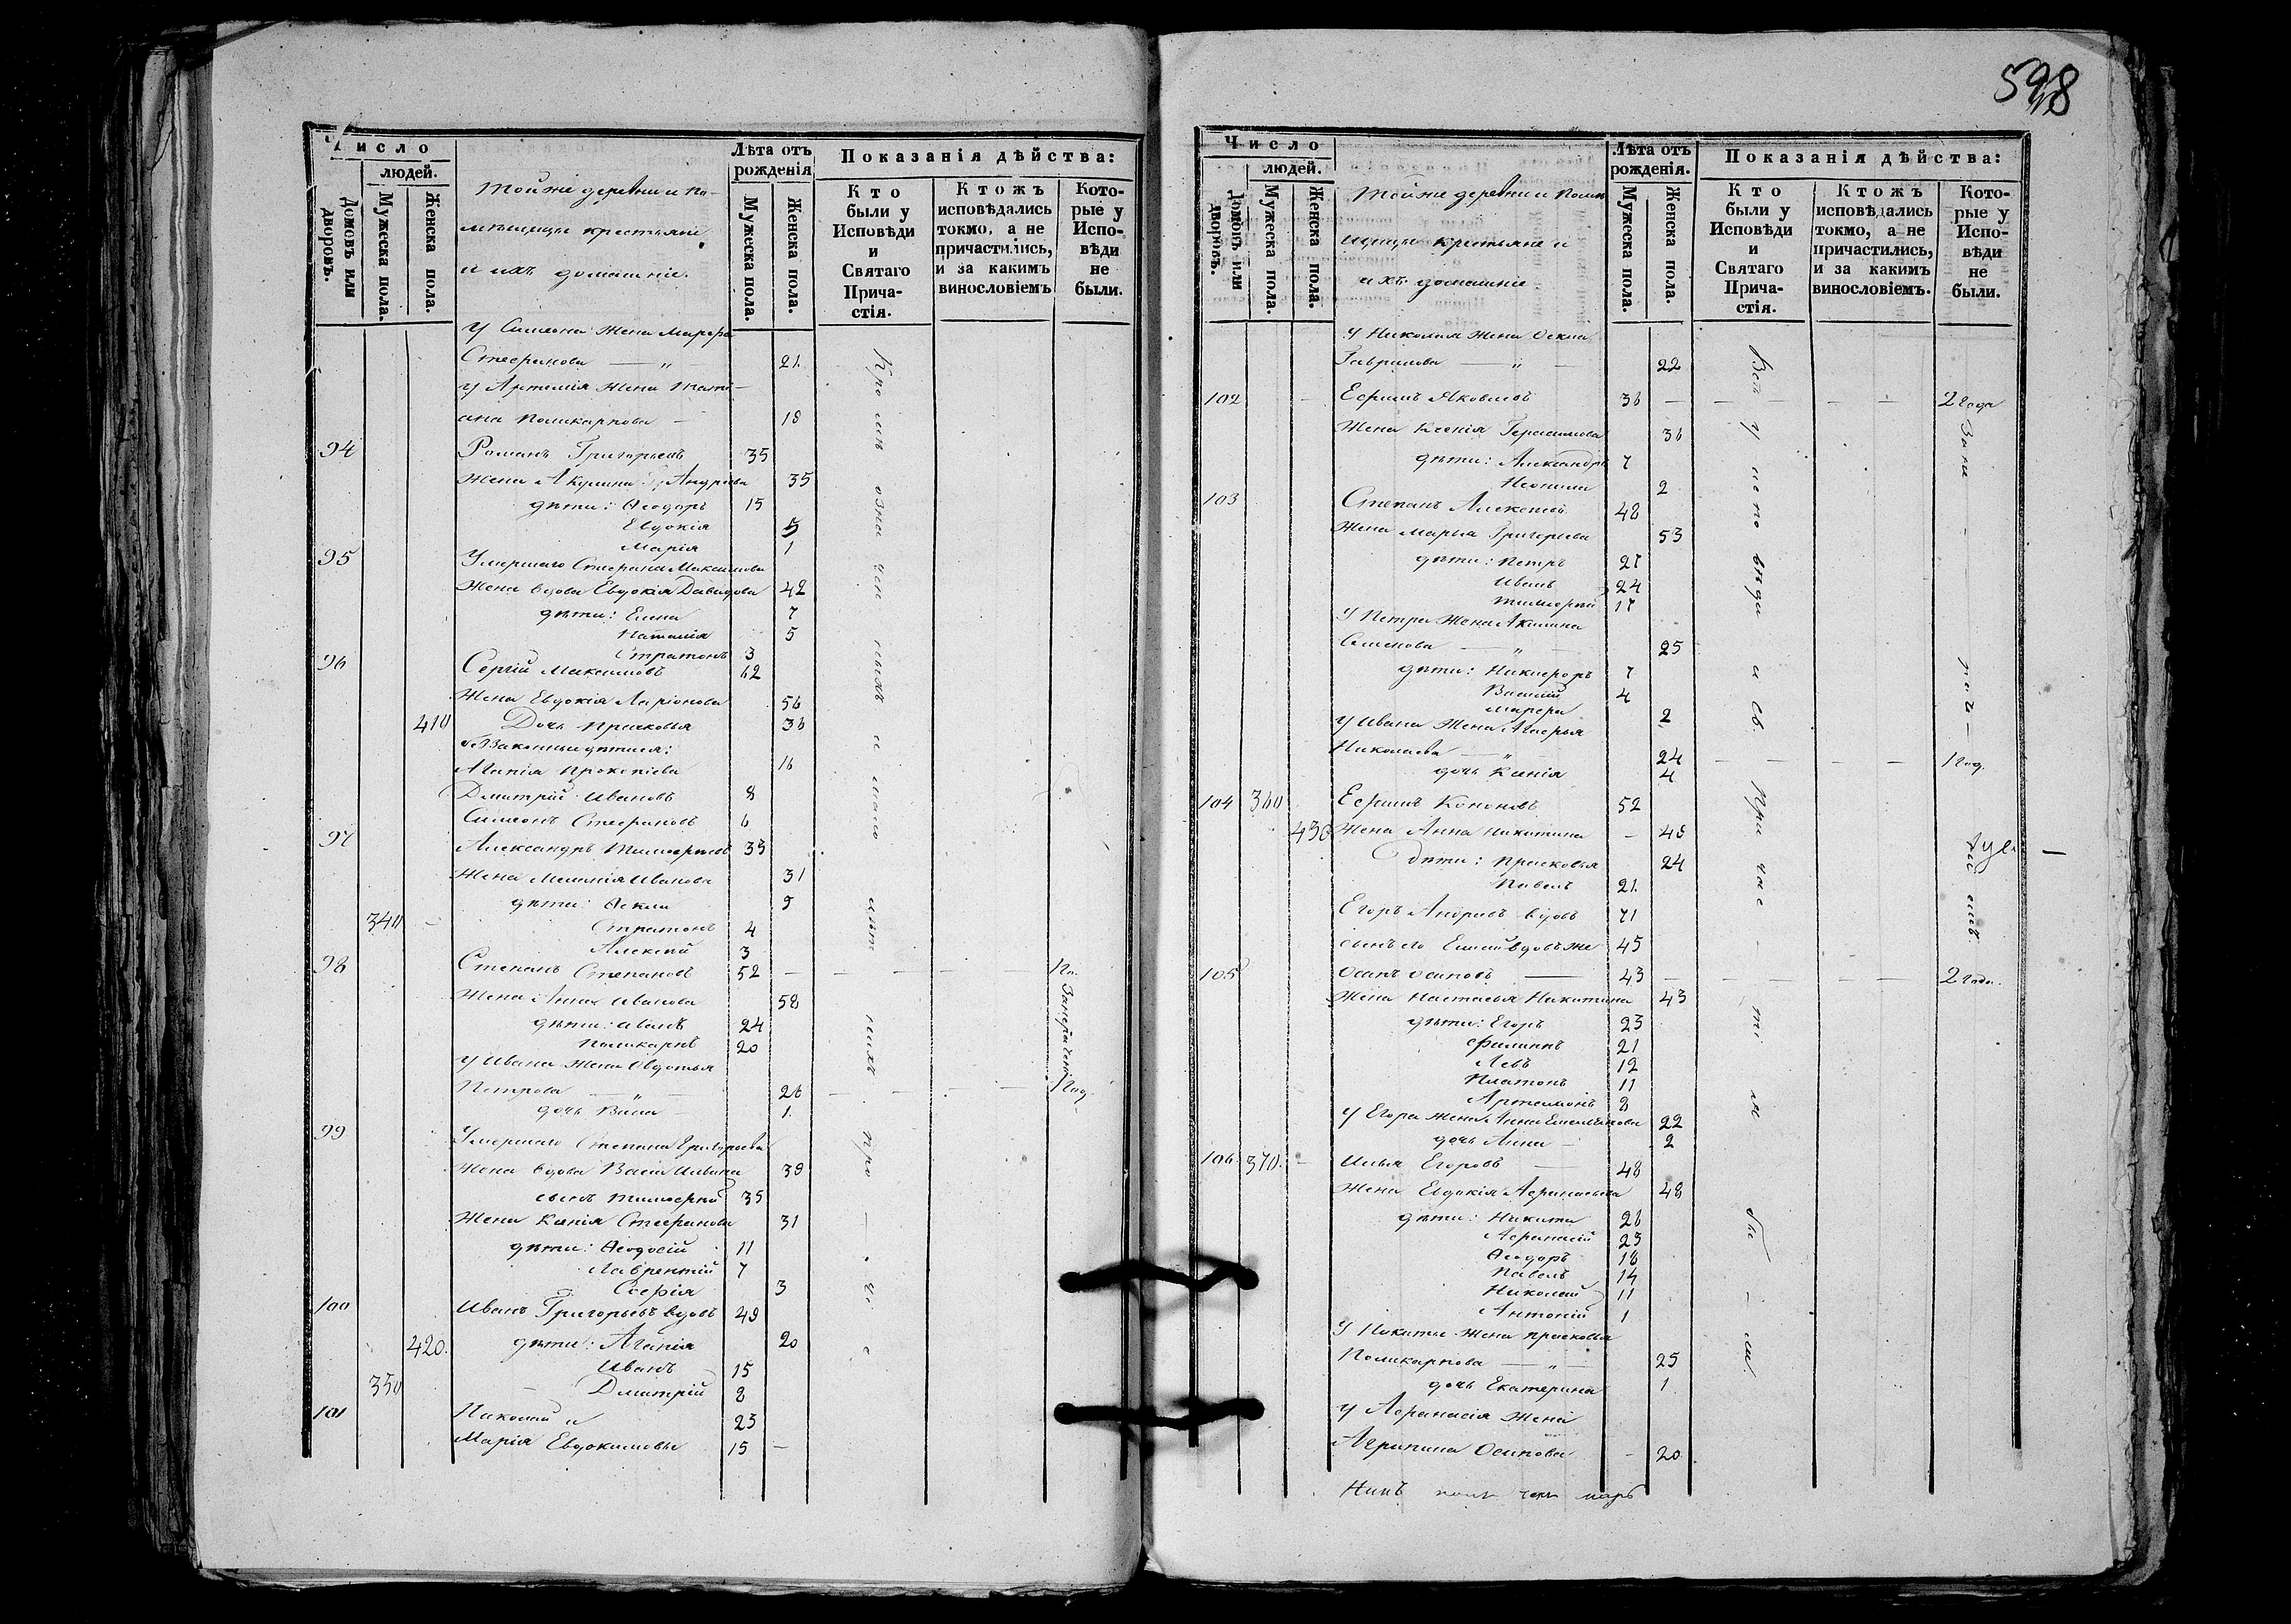 598
Число
людей.
Домовъ или дворовъ.
Мужеска пола.
Женска пола.
Той же деревни и По-
мѣщицы крестьяне
и ихъ домашніе.
Лѣта отъ рожденія
Мужеска пола.
Женска пола.
Показанія дѣйства:
Кто были у Исповѣди и Святаго Прича-стія.
Ктожъ исповѣдались токмо, а не причастились, и за какимъ винословіемъ
Кото-рые у Испо-вѣди не были.
У Симеона жена Марѳа
Стефанова — " 21.
У Артемія жена Тати-
ана Поликарпова — 18
94 Романъ Григорьевъ 35
Жена Акулина Андреева 35
дѣти: Ѳеодоръ 15
Евдокія 5
Марія 1
95 Умершаго Стефана Максимова
Жена вдова Евдокія Давидова 42
дѣти: Елена 7
Наталія 5
Стратонъ 3
96 Сергій Максимовъ 62
Жена Евдокія Ларіонова 56
410 Дочь Прасковья 36
незаконныя дѣти ея:
Агапія Прокопіева 16
Дмитрій Ивановъ 8
Симеонъ Стефановъ 6
97 Александръ Тимофеевъ 33
Жена Меланія Иванова 31
дѣти: Ѳекла 9
340 Стратонъ 4
Алексій 3
98 Степанъ Степановъ 52
Жена Анна Иванова 58
дѣти: Иванъ 24
Поликарпъ 20
У Ивана жена Авдотья
Петрова — " — 26 1 год.
дочь Васа 1.
99 Умершаго Степана Григорьева
Жена вдова Васа Ильина 39
сынъ Тимофей 35
Жена Ксенія Стефанова 31
дѣти: Ѳеодосій 11
Лаврентій 7
Софія 3
100 Иванъ Григорьевъ вдовъ 49
420. дѣти: Агапія 20
Иванъ 15
350 Дмитрій 8
101 Николай и 23
Марія Евдокимовы 15 —
Число
людей.
Домовъ или дворовъ.
Мужеска пола.
Женска пола.
Той же деревни и Помѣ
щицы крестьяне и
ихъ домашніе
Лѣта отъ рожденія.
Мужеска пола.
Женска пола.
Показанія дѣйства:
Кто были у Исповѣди и Святаго Прича-стія.
Ктожъ исповѣдались токмо, а не причастились, и за какимъ винословіемъ.
Кото-рые у Испо-вѣди не были.
У Николая жена Ѳекла
Гаврилова — " — 22
102 Ефимъ Яковлевъ 36 2 года
Жена Ксенія Герасимова 36
дѣти: Александръ 7
Неонила 2
103 Степанъ Алексѣевъ 48
Жена Марья Григорьева 53
дѣти: Петръ 27
Иванъ 24
Тимофей 17
У Петра жена Акилина
Семенова — " — 25
дѣти: Никифоръ 7
Василій 4
Марфа 2
У Ивана жена Агафья
Николаева — " 24 1 год.
дочь Ксенія 4
104 360 Ефимъ Кононовъ 52
430 Жена Анна Никитина — 49
дѣти: Прасковья 24
Павелъ 21.
Егоръ Андреевъ вдовъ 71
сынъ его Елисей вдовъ же 45
105 Осипъ Осиповъ — 43 2 года.
Жена Настасья Никитина 43
дѣти: Егоръ 23
Филиппъ 21
Левъ 12
Платонъ 11
Артамонъ 8
У Егора жена Анна Емельянова 22
дочь Анна 2
106. 370. Илья Егоровъ 48
Жена Евдокія Афанасьева 48
дѣти: Никита 26
Афанасій 23
Ѳеодоръ 18
Павелъ 14
Николай 11
Антоній 1
У Никиты жена Прасковья
Поликарпова — " — 25
дочь Екатерина 1
У Афанасія жена
Агрипина Осипова — 20